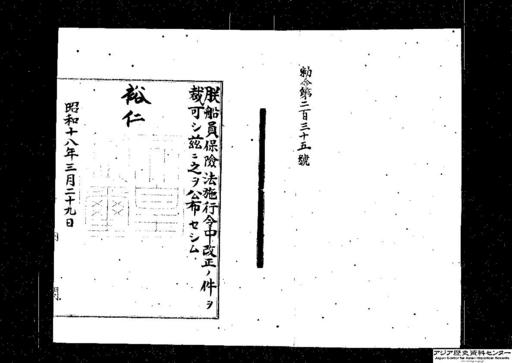 勅令第二百三十五號
朕船員保險法施行令中改正ノ件ヲ
裁可シ茲ニ之ヲ公布セシム
裕仁
昭和十八年三月二十九日
アジア歴史資料センター
Japan Center for Asian Historical Records